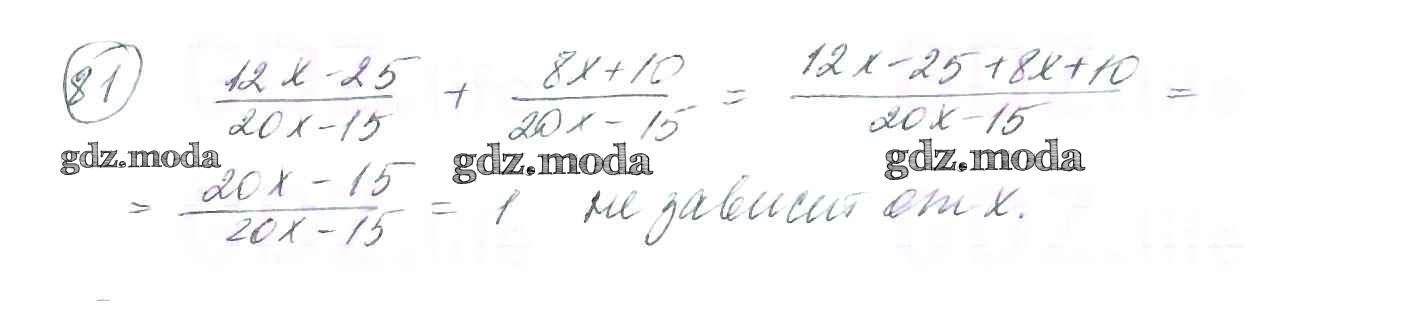 81 (12x-25)/(20x-15) + (8x+10)/(20x-15) = (12x-25+8x+10)/(20x-15) =
gdz.moda gdz.moda gdz.moda
= (20x-15)/(20x-15) = 1 не зависит от x.